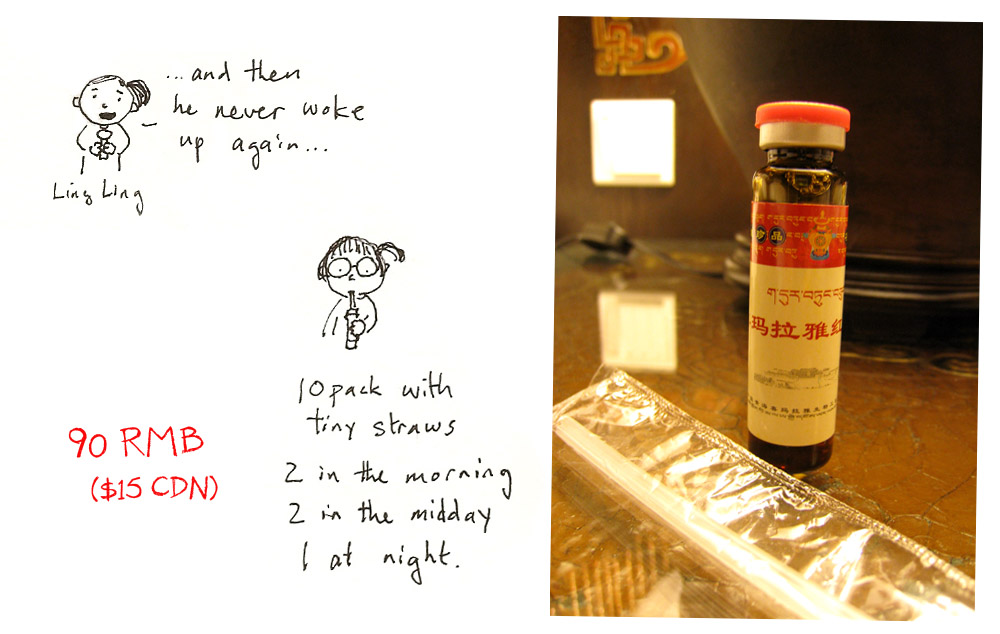 ...and then
he never woke
up again...
Ling Ling
10 pack with
tiny straws
90 RMB
($15 CDN)
2 in the morning
2 in the midday
1 at night.
珍品
玛拉雅红